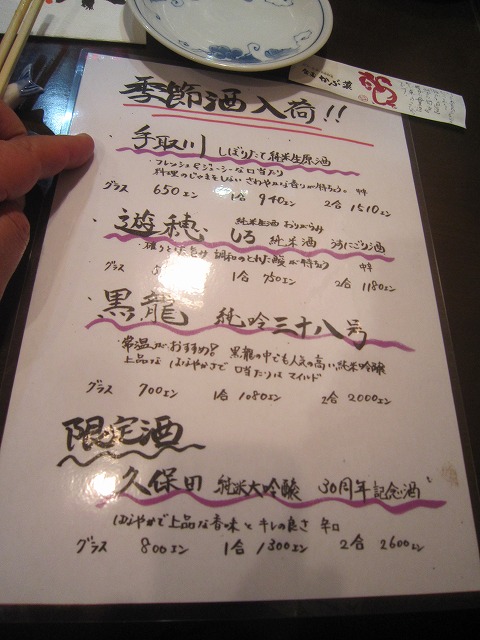 季節酒入荷!!
手取川 しぼりたて純米生原酒
・フレッシュでジューシーな口当たり
料理のじゃまをしない さわやかな香りが特ちょう。
グラス 650エン 1合 940エン 2合 1510エン
純米生酒 おりがらみ
遊穂 しろ 純米酒 うすにごり酒
調和のとれた酸が特ちょう
グラス 1合 750エン 2合 1180エン
黒龍 純吟三十八号
・常温でおすすめ! 黒龍の中でも人気の高い純米吟醸
上品な はなやかさで 口当たりは マイルド
グラス 700エン 1合 1080エン 2合 2000エン
限定酒
久保田 純米大吟醸 30周年記念酒
はなやかで上品な香味とキレの良さ 辛口
グラス 800エン 1合 1300エン 2合 2600エン